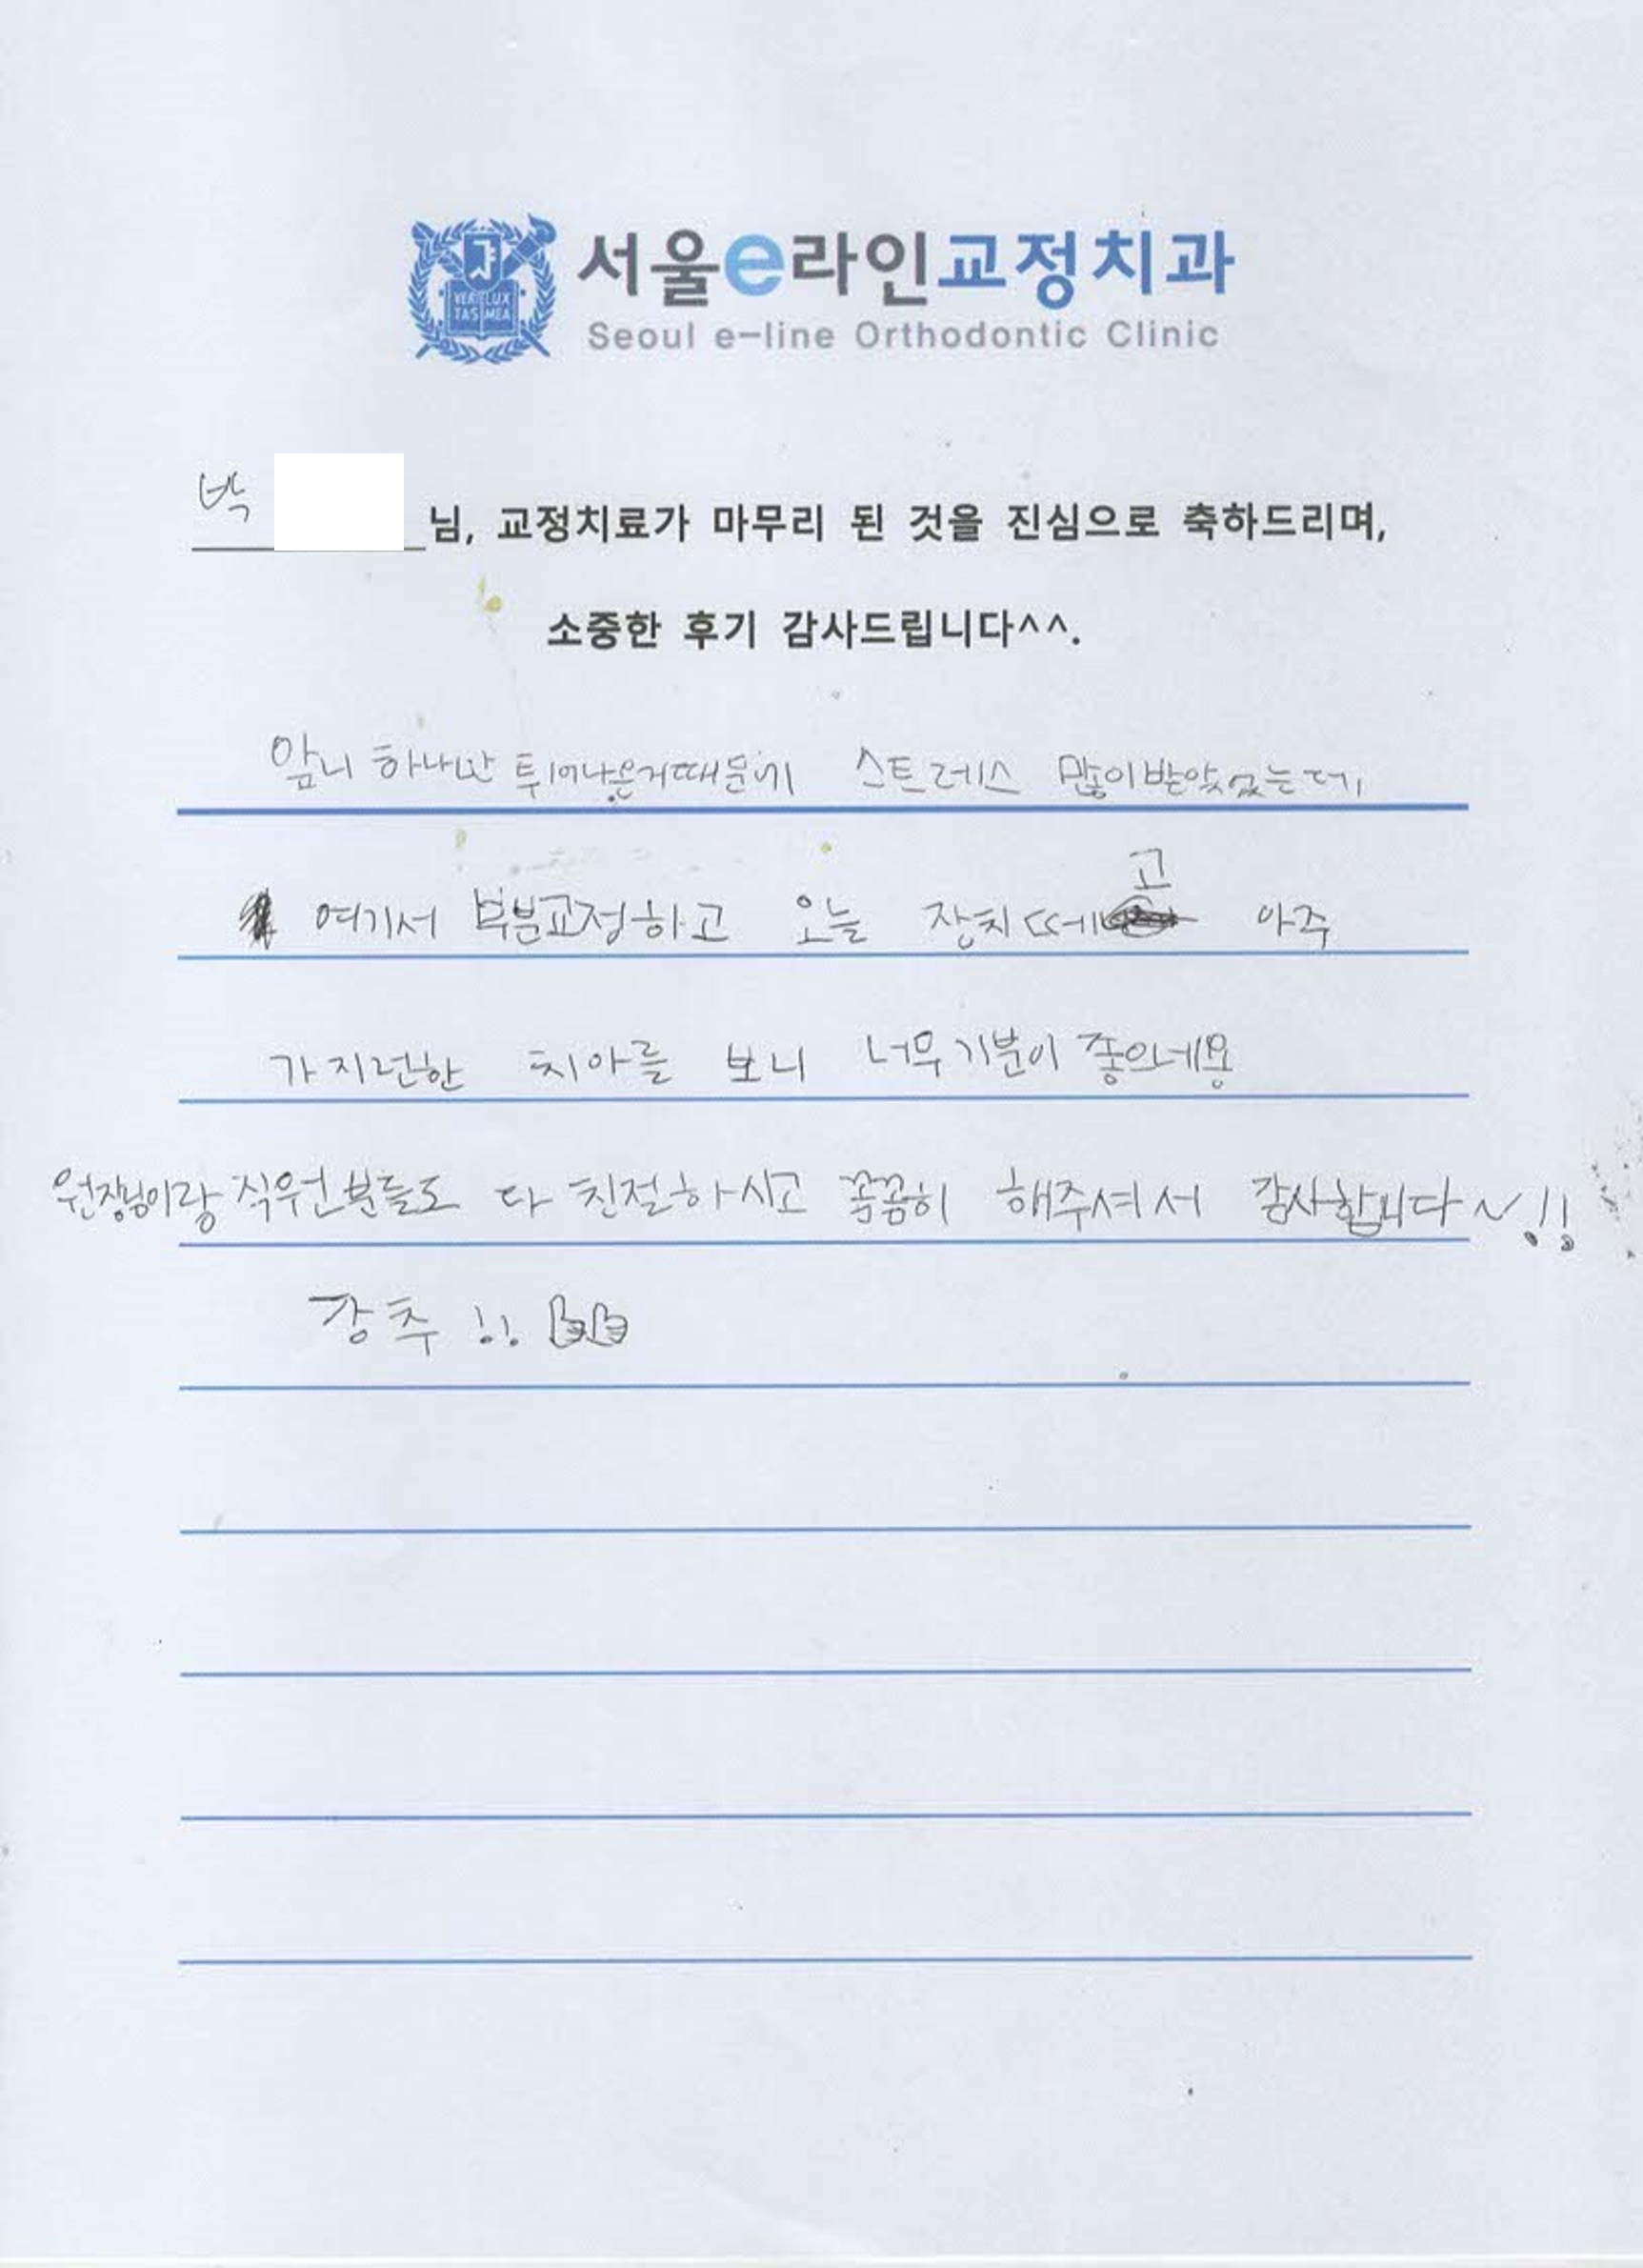 서울e라인교정치과
Seoul e-line Orthodontic Clinic
VERI LUX
TAS MEA
박 님, 교정치료가 마무리 된 것을 진심으로 축하드리며,
소중한 후기 감사드립니다^^.
앞니 하나만 튀어나온거때문에 스트레스 많이받았었는데
여기서 부분교정하고 오늘 장치떼고 아주
가지런한 치아를 보니 너무기분이 좋으네용
원장님이랑 직원분들도 다 친절하시고 꼼꼼히 해주셔서 감사합니다~!!
강추!!